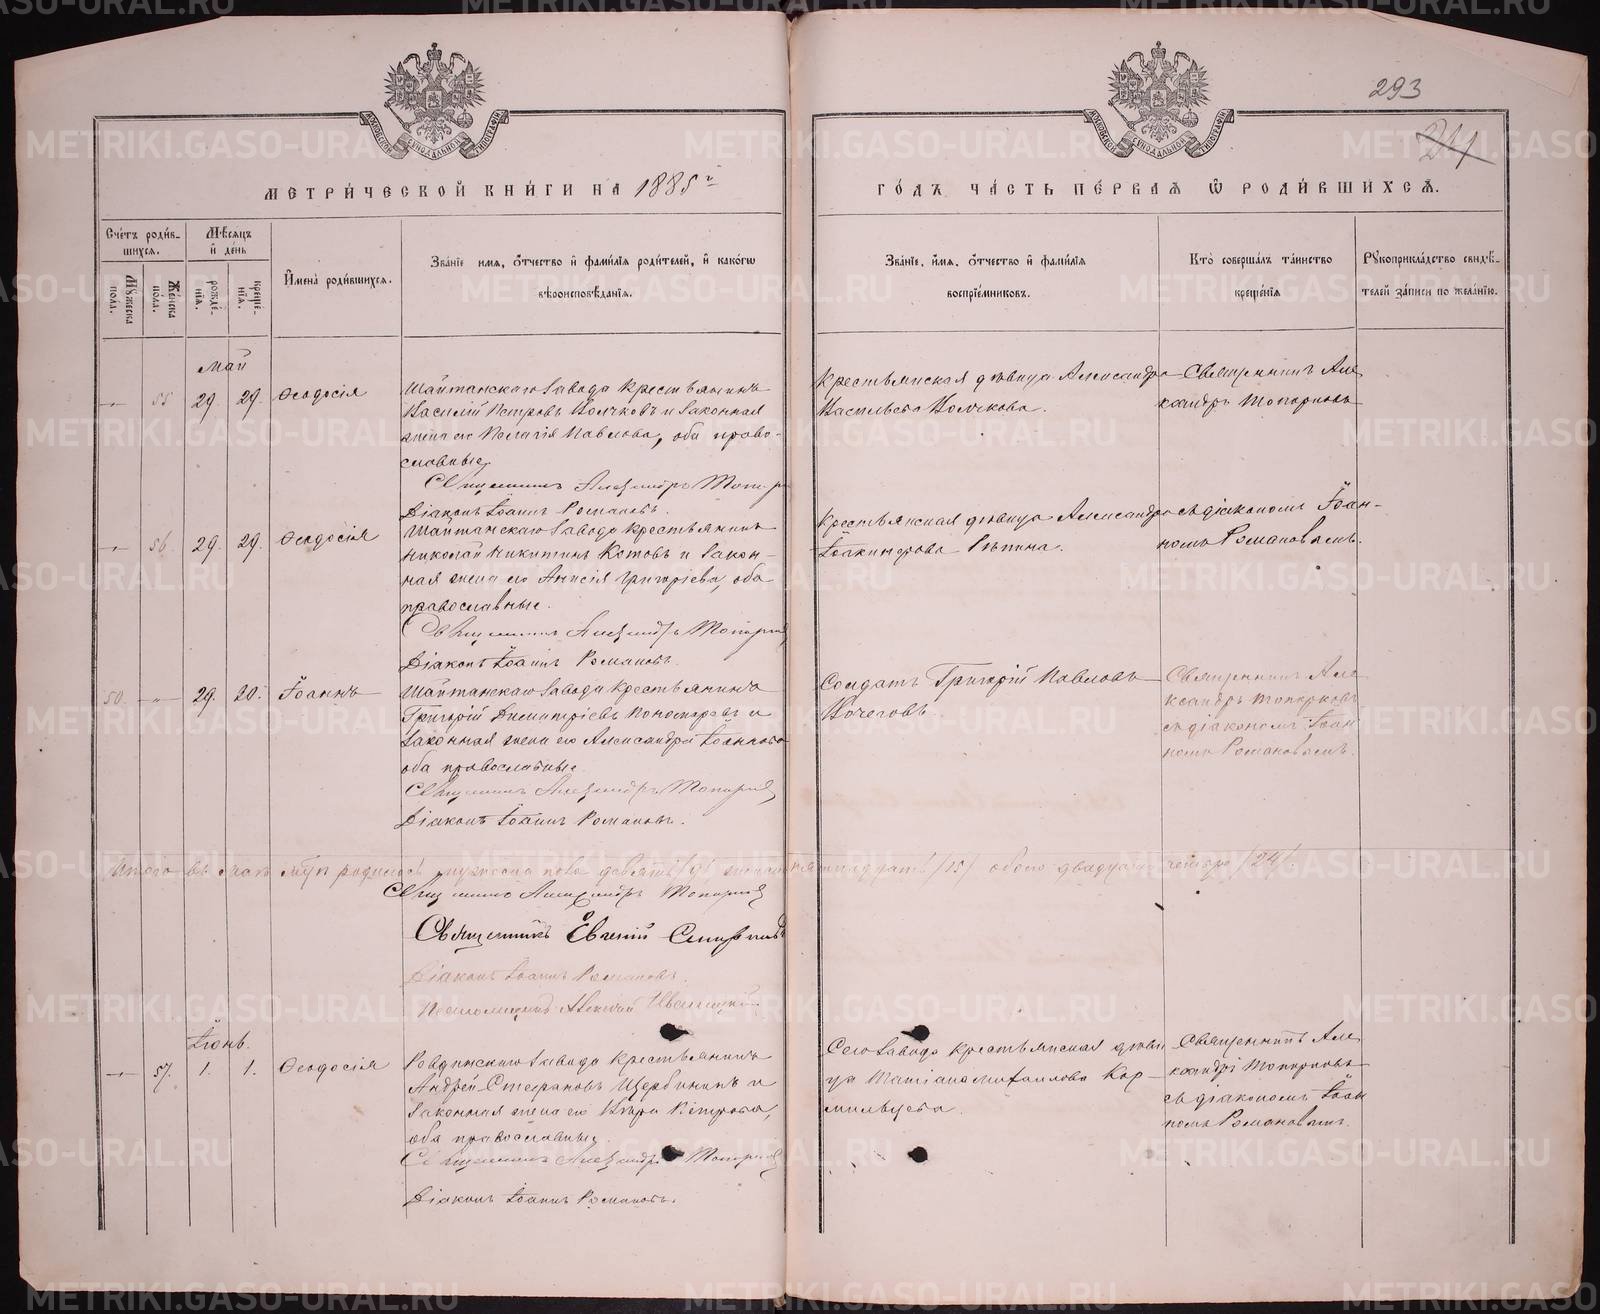 293
214
МЕТРИ́ЧЕСКОЙ КНИ́ГИ НА 1885 г
ГО́ДЪ ЧА́СТЬ ПЕ́РВАЯ Ѡ РОДИ́ВШИХСЯ.
Сче́тъ роди́в-
шихся.
Мꙋжеска
пола.
Же́нска
пола.
Мѣ́сяцъ
и҆ де́нь
рожде́-
нїя.
креще́-
нїя.
И҆мена̀ роди́вшихся.
Зва́нїе имя, ѻ҆́тчество и҆ фами́лїя роди́телей, и҆ како́гѡ
вѣроисповѣ́данїя.
Зва́нїе, и҆́мя, ѻ҆́тчество и҆ фами́лїя
воспрїе́мниковъ.
Кто̀ соверша́лъ та́инство
креще́нїя
Рꙋкоприкла́дство свидѣ́-
телей за́писи по жела́нїю.
Май
55 29. 29. Ѳеодосія
Шайтанскаго завода крестьянинъ
Василій Петровъ Волчковъ и законная
жена его Пелагія Павлова, оба право-
славные.
Священникъ Александръ Топорк
Діаконъ Іоаннъ Романовъ.
Крестьянская дѣвица Александра
Васильева Волчкова.
Священникъ Але
ксандръ Топорковъ
56. 29. 29. Ѳеодосія
Шайтанскаго завода крестьянинъ
Николай Никитинъ Котовъ и закон-
ная жена его Анисія Григоріева, оба
православные.
Священникъ Александръ Топорков
Діаконъ Іоаннъ Романовъ.
Крестьянская дѣвица Александра
Іоакинфова Рѣпина.
съ діакономъ Іоан-
номъ Романовымъ.
50. 29. 30. Іоаннъ
Шайтанскаго завода крестьянинъ
Григорій Димитріевъ Пономаревъ и
законная жена его Александра Іоаннова
оба православные
Священникъ Александръ Топорков
Діаконъ Іоаннъ Романовъ.
Солдатъ Григорій Павловъ
Кочеговъ.
Священникъ Але
ксандръ Топорковъ
съ діакономъ Іоан
номъ Романовымъ.
Итого въ маѣ м-цѣ родилось мужеска пола девять /9/ женска пятнадцать /15/ обоего двадцать четыре /24/.
Священникъ Александръ Топорков
Священникъ Евгеній
Діаконъ Іоаннъ Романовъ.
Псаломщикъ Алексѣй
Іюнь.
57. 1. 1. Ѳеодосія
Ревдинскаго завода крестьянинъ
Андрей Стефановъ Щербининъ и
законная жена его Вѣра Петрова,
оба православные.
Священникъ Александръ Топорков
Діаконъ Іоаннъ Романовъ.
Сего завода крестьянская дѣви
ца Татіана Михаилова Кор-
мильцева.
Священникъ Але
ксандръ Топорковъ
съ діакономъ Іоан
номъ Романовымъ.
METRIKI.GASO-URAL.RU